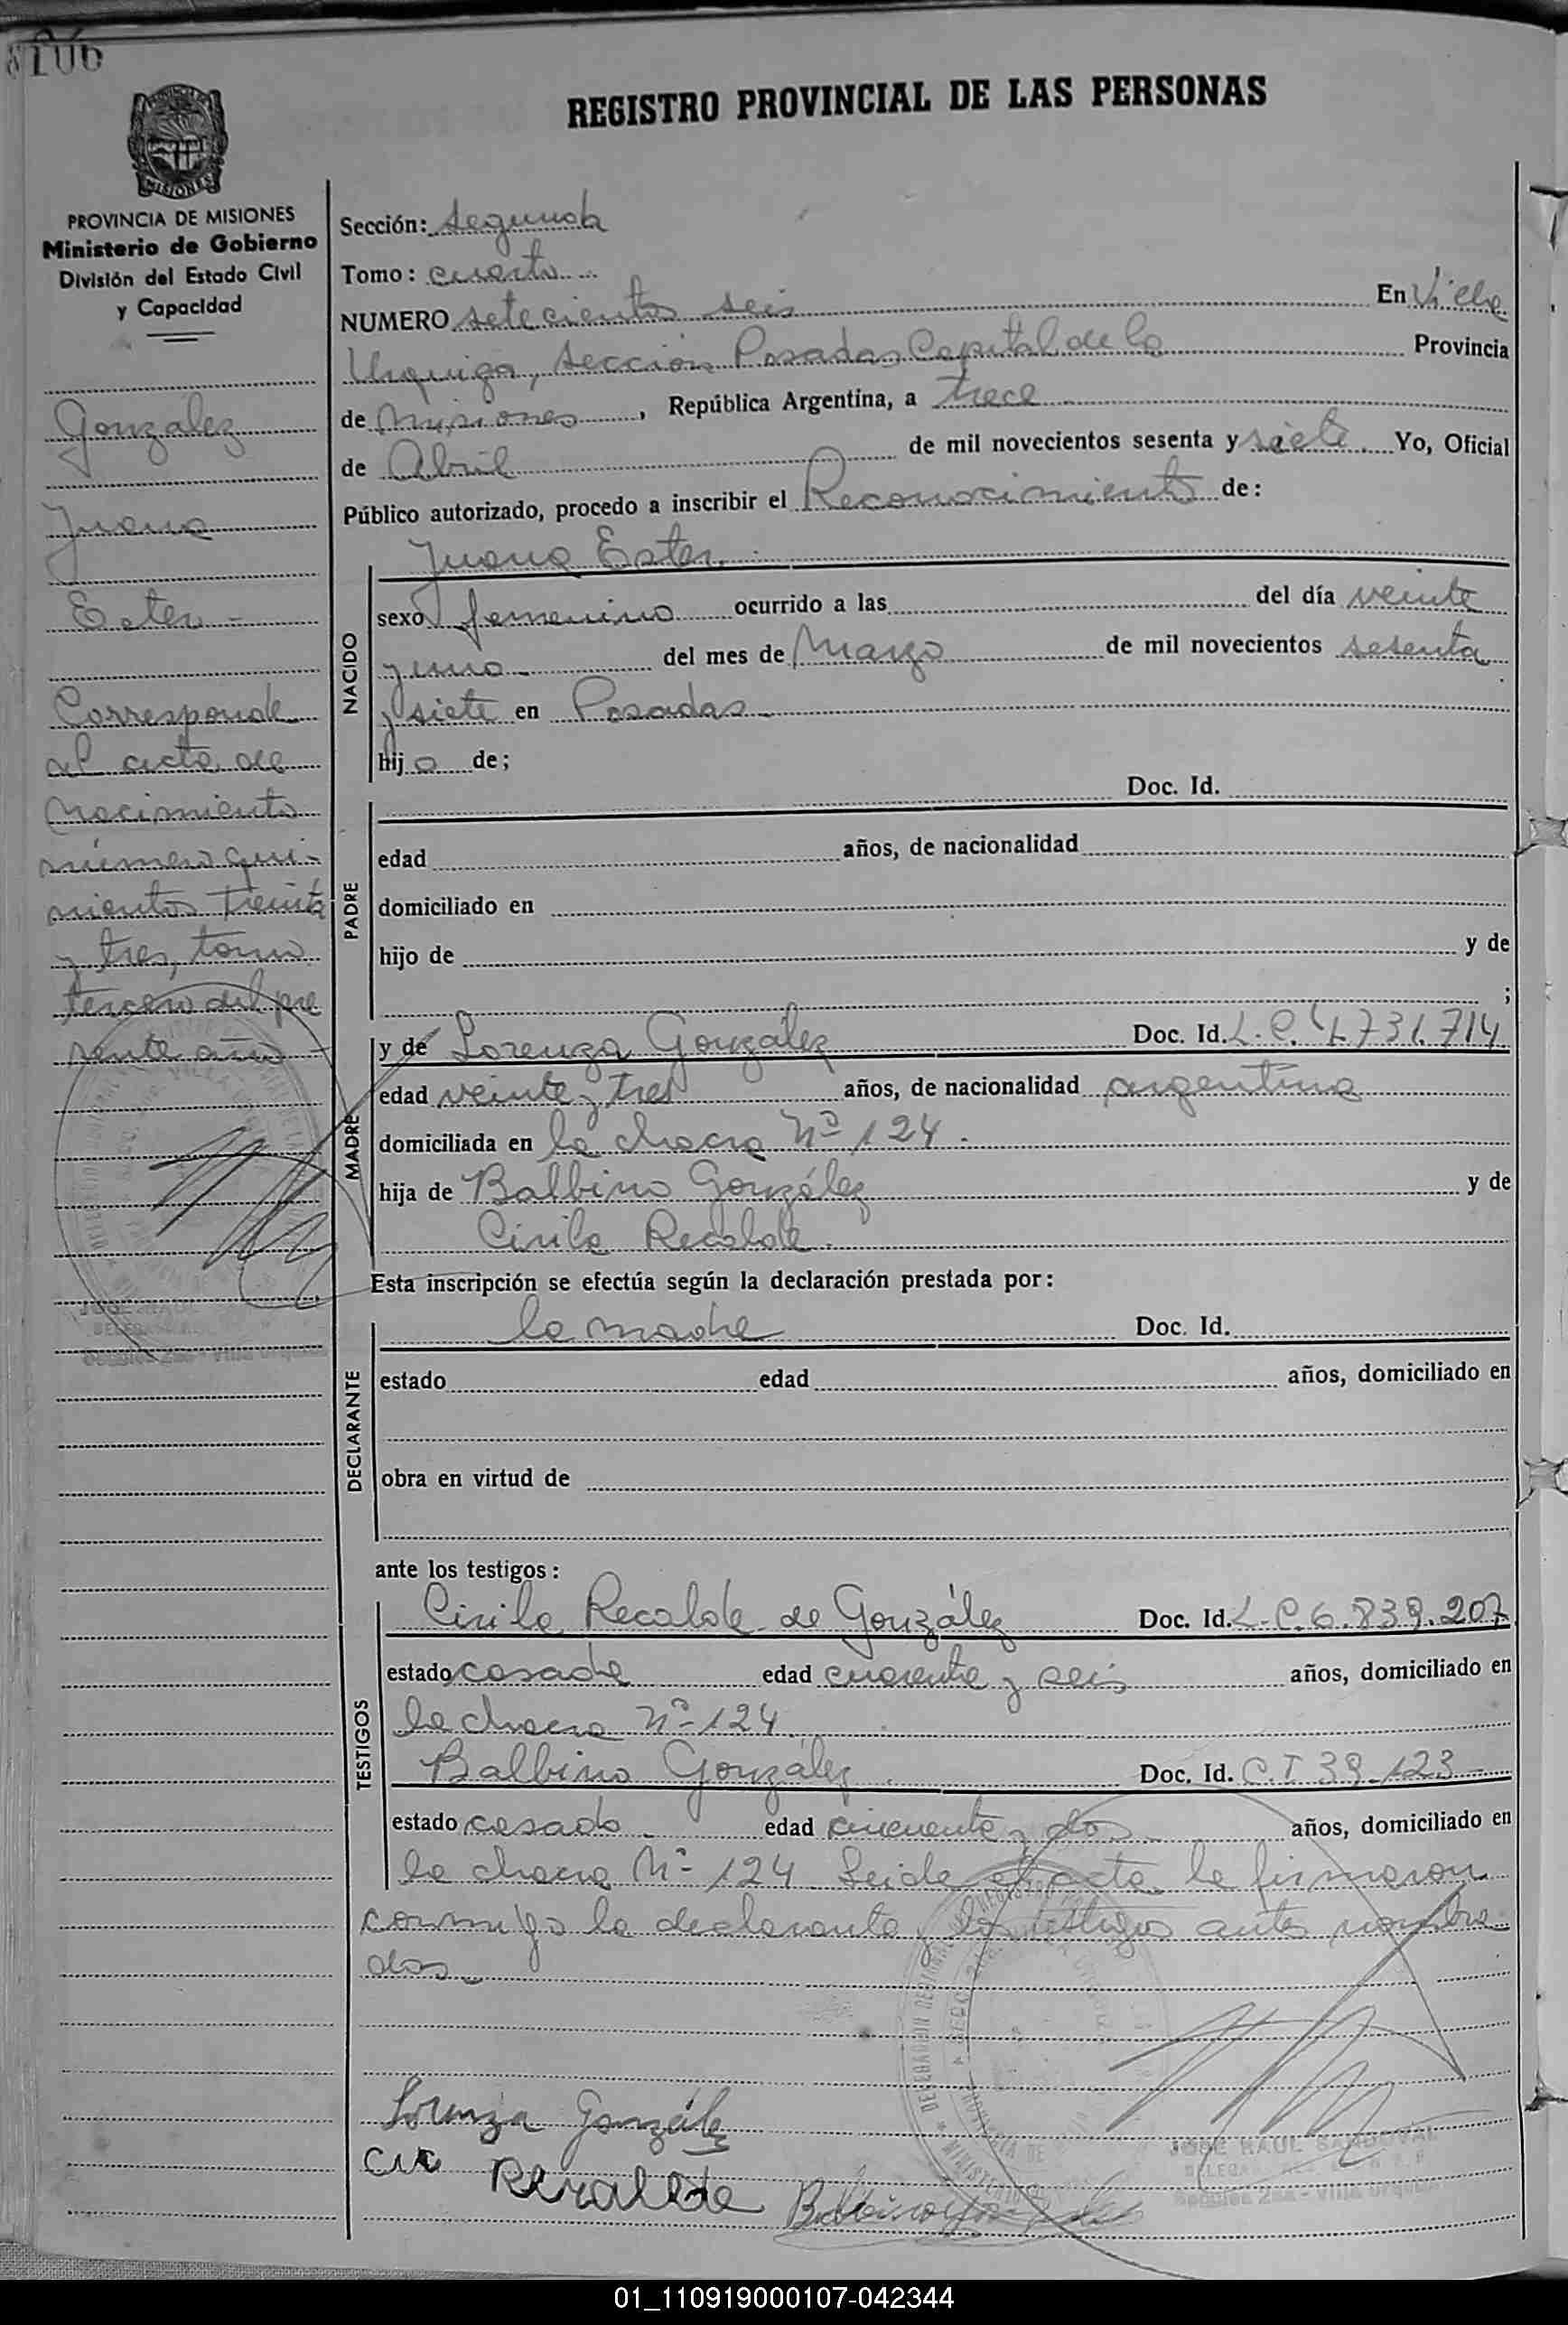 REGISTRO PROVINCIAL DE LAS PERSONAS
MISIONES
PROVINCIA DE MISIONES
Ministerio de Gobierno
División del Estado Civil
y Capacidad
González
Juana
Ester -
Corresponde
al acta de
nacimiento
número qui-
nientos treinta
y tres, tomo
tercero del pre
sente año -
Sección: Segunda
Tomo: cuarto
NUMERO setecientos seis En Villa
Urquiza, Sección Posadas Capital de la Provincia
de Misiones, República Argentina, a trece
de Abril de mil novecientos sesenta y siete. Yo, Oficial
Público autorizado, procedo a inscribir el Reconocimiento de:
Juana Ester.
NACIDO
sexo femenino ocurrido a las del día veinte
y uno del mes de Marzo de mil novecientos sesenta
y siete en Posadas
hija de;
PADRE
Doc. Id.
edad años, de nacionalidad
domiciliado en
hijo de y de
;
MADRE
y de Lorenza González Doc. Id. L.C. 4.731.714
edad veinte y tres años, de nacionalidad argentina
domiciliada en la chacra Nº 124.
hija de Balbino González y de
Cirila Recalde.
Esta inscripción se efectúa según la declaración prestada por:
DECLARANTE
la madre Doc. Id.
estado edad años, domiciliado en
obra en virtud de
ante los testigos:
TESTIGOS
Cirila Recalde de González Doc. Id. L.C. 6.839.207
estado casada edad cuarenta y seis años, domiciliado en
la chacra Nº 124
Balbino González. Doc. Id. C.I 39.123
estado casado. edad cincuenta y dos años, domiciliado en
la chacra Nº 124. Leida el acta la firmaron
conmigo la declarante y los testigos antes nombra-
dos
Lorenza González
JOSE RAUL SANDOVAL
Recalde Balbino
Seccion 2da - Villa Urquiza
01_110919000107-042344